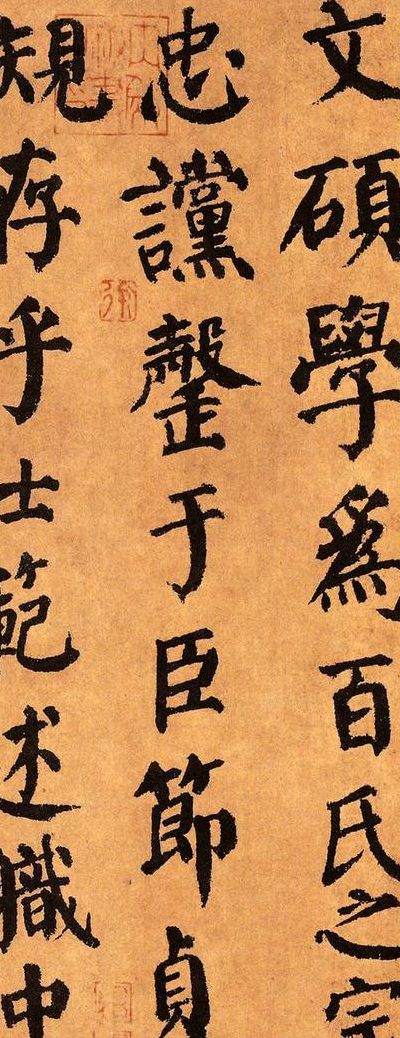 文碩學為百氏之宗
忠讜罄于臣節貞
規存乎士範述職中